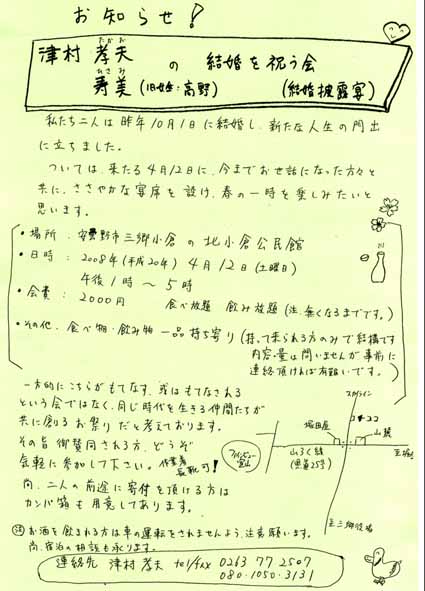 お知らせ!
津村 孝夫 たかお
寿美 ひさみ (旧姓:高野)
の 結婚を祝う会
(結婚披露宴)
私たち二人は昨年10月1日に結婚し、新たな人生の門出
に立ちました。
ついては、来たる4月12日に、今までお世話になった方々と
共に、ささやかな宴席を設け、春の一時を楽しみたいと
思います。
・場所 : 安曇野市三郷小倉の北小倉公民館
・日時 : 2008年(平成20年) 4月12日(土曜日)
午後1時〜5時
・会費 : 2000円 食べ放題 飲み放題(注、無くなるまでです。)
・その他、食べ物・飲み物一品持ち寄り(持って来られる方のみで結構です
内容・量は問いませんが事前に
連絡頂ければ有難いです。)
一方的にこちらがもてなす、或はもてなされる
という会ではなく、同じ時代を生きる仲間たちが
共に創るお祭りだと考えております。
その旨御賛同される方、どうぞ
気軽に参加して下さい。
作業着
長靴可!
尚、二人の前途に寄付を頂ける方は
カンパ箱も用意してあります。
スカイライン
ココ
堀田屋
山麓
ファインビュー
室山
山ろく線
(県道25号)
至三郷役場
注 お酒を飲まれる方は車の運転をされませんよう、注意願います。
尚、宿泊の相談も承ります。
連絡先 津村孝夫 tel/fax 0263 77 2507
080-1050-3131